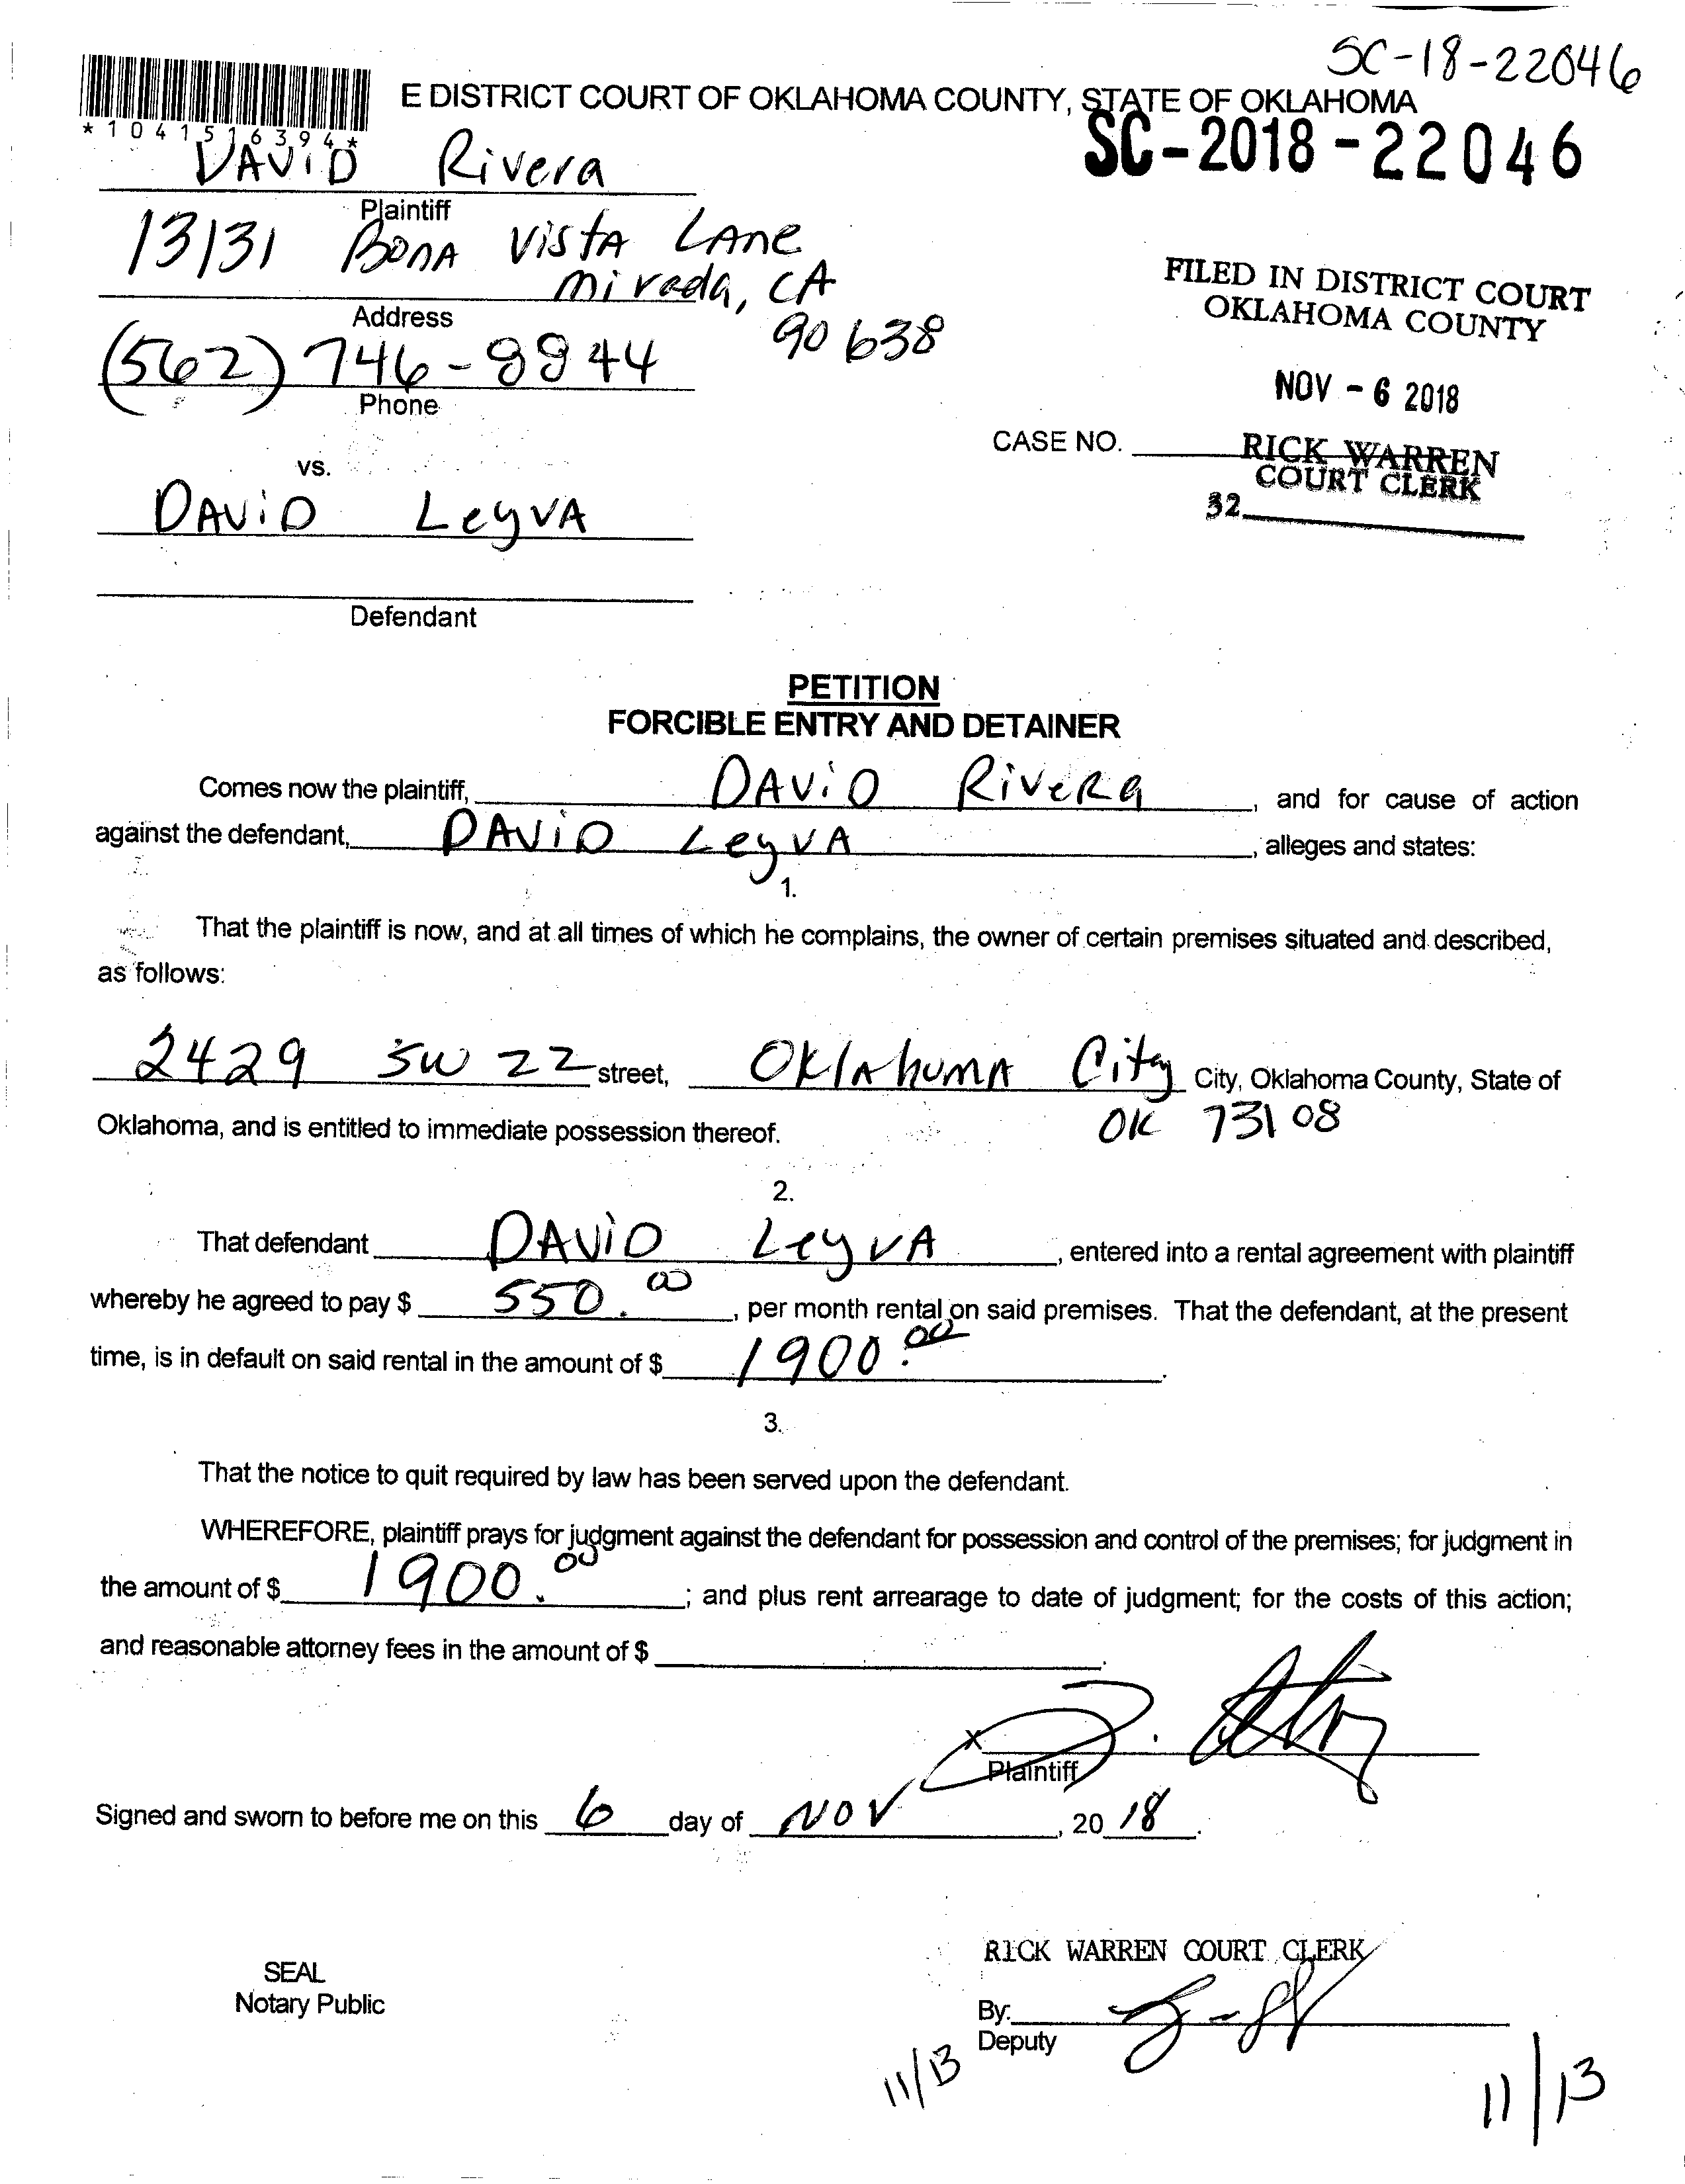 SC-18-22046
E DISTRICT COURT OF OKLAHOMA COUNTY, STATE OF OKLAHOMA
*1041516394*
SC-2018-22046
DAViD Rivera
Plaintiff
13131 BONA VistA LAne
mirada, CA
90638
Address
(562) 746-8844
Phone
FILED IN DISTRICT COURT
OKLAHOMA COUNTY
NOV - 6 2018
CASE NO.
RICK WARREN
COURT CLERK
32
vs.
DAViD LeyVA
Defendant
PETITION
FORCIBLE ENTRY AND DETAINER
Comes now the plaintiff, DAViD RiVeRa, and for cause of action
against the defendant, DAViD LeyVA, alleges and states:
1.
That the plaintiff is now, and at all times of which he complains, the owner of certain premises situated and described,
as follows:
2429 SW 22 street, OKlAhumA City City, Oklahoma County, State of
OK 73108
Oklahoma, and is entitled to immediate possession thereof.
2.
That defendant DAViD LeyVA, entered into a rental agreement with plaintiff
whereby he agreed to pay $ 550.00, per month rental on said premises. That the defendant, at the present
time, is in default on said rental in the amount of $ 1900.00.
3.
That the notice to quit required by law has been served upon the defendant.
WHEREFORE, plaintiff prays for judgment against the defendant for possession and control of the premises; for judgment in
the amount of $ 1900.00; and plus rent arrearage to date of judgment; for the costs of this action;
and reasonable attorney fees in the amount of $ .
X
Plaintiff
Signed and sworn to before me on this 6 day of NOV, 20 18.
RICK WARREN COURT CLERK
SEAL
Notary Public
By:
Deputy
11/13
11/13